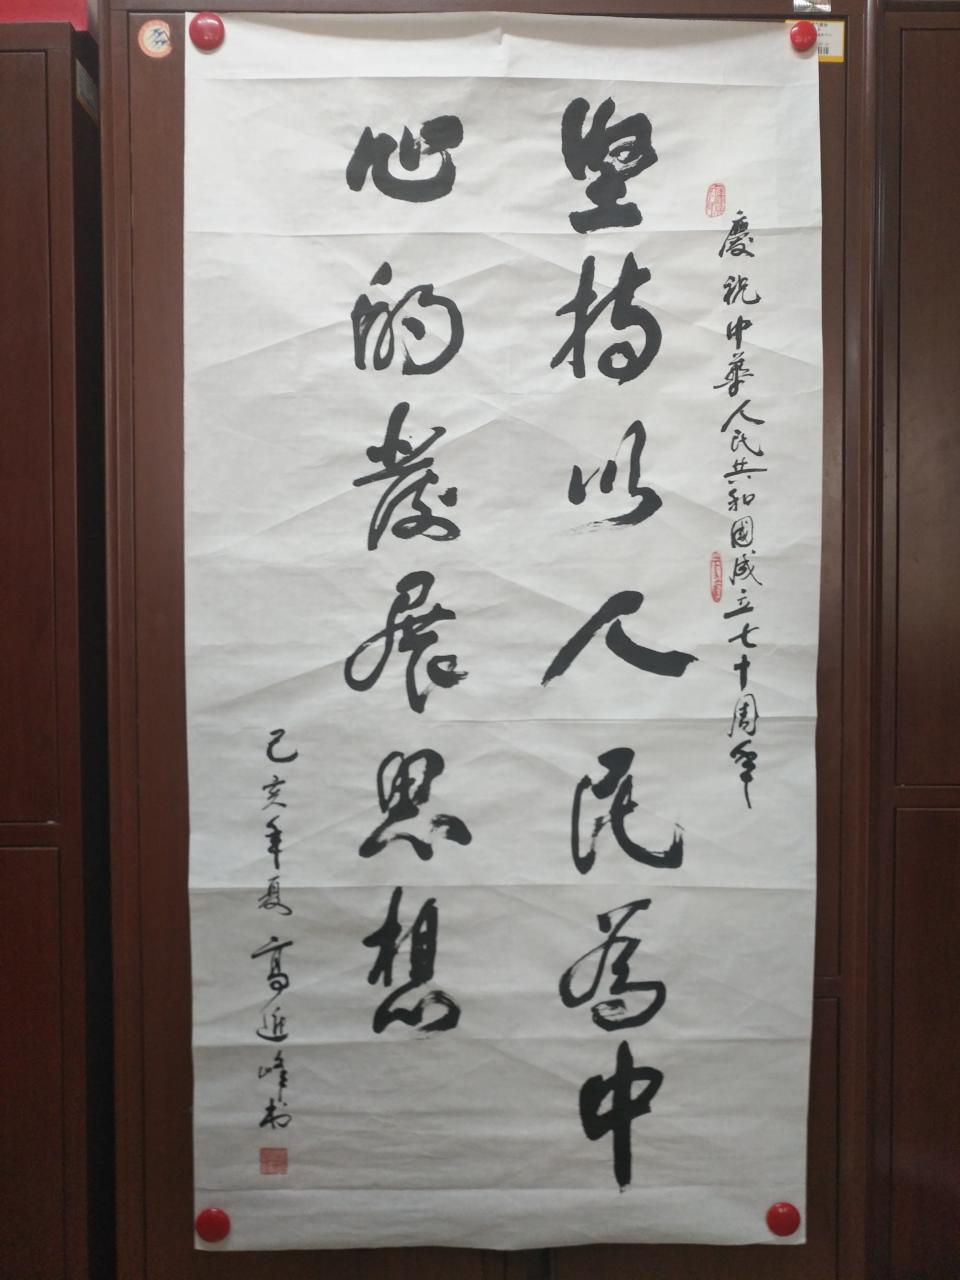 慶祝中華人民共和國成立七十周年
坚持以人民為中
心的發展思想
己亥年夏 高進峰书